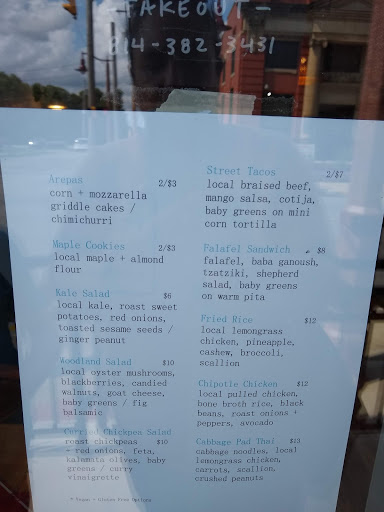 -TAKEOUT-
814-382-3431
Arepas 2/$3
corn + mozzarella
griddle cakes /
chimichurri
Maple Cookies 2/$3
local maple + almond
flour
Kale Salad $6
local kale, roast sweet
potatoes, red onions,
toasted sesame seeds /
ginger peanut
Woodland Salad $10
local oyster mushrooms,
blackberries, candied
walnuts, goat cheese,
baby greens / fig
balsamic
Curried Chickpea Salad
roast chickpeas $10
+ red onions, feta,
kalamata olives, baby
greens / curry
vinaigrette
Street Tacos 2/$7
local braised beef,
mango salsa, cotija,
baby greens on mini
corn tortilla
Falafel Sandwich $8
falafel, baba ganoush,
tzatziki, shepherd
salad, baby greens
on warm pita
Fried Rice $12
local lemongrass
chicken, pineapple,
cashew, broccoli,
scallion
Chipotle Chicken $12
local pulled chicken,
bone broth rice, black
beans, roast onions +
peppers, avocado
Cabbage Pad Thai $13
cabbage noodles, local
lemongrass chicken,
carrots, scallion,
crushed peanuts
* Vegan + Gluten Free Options